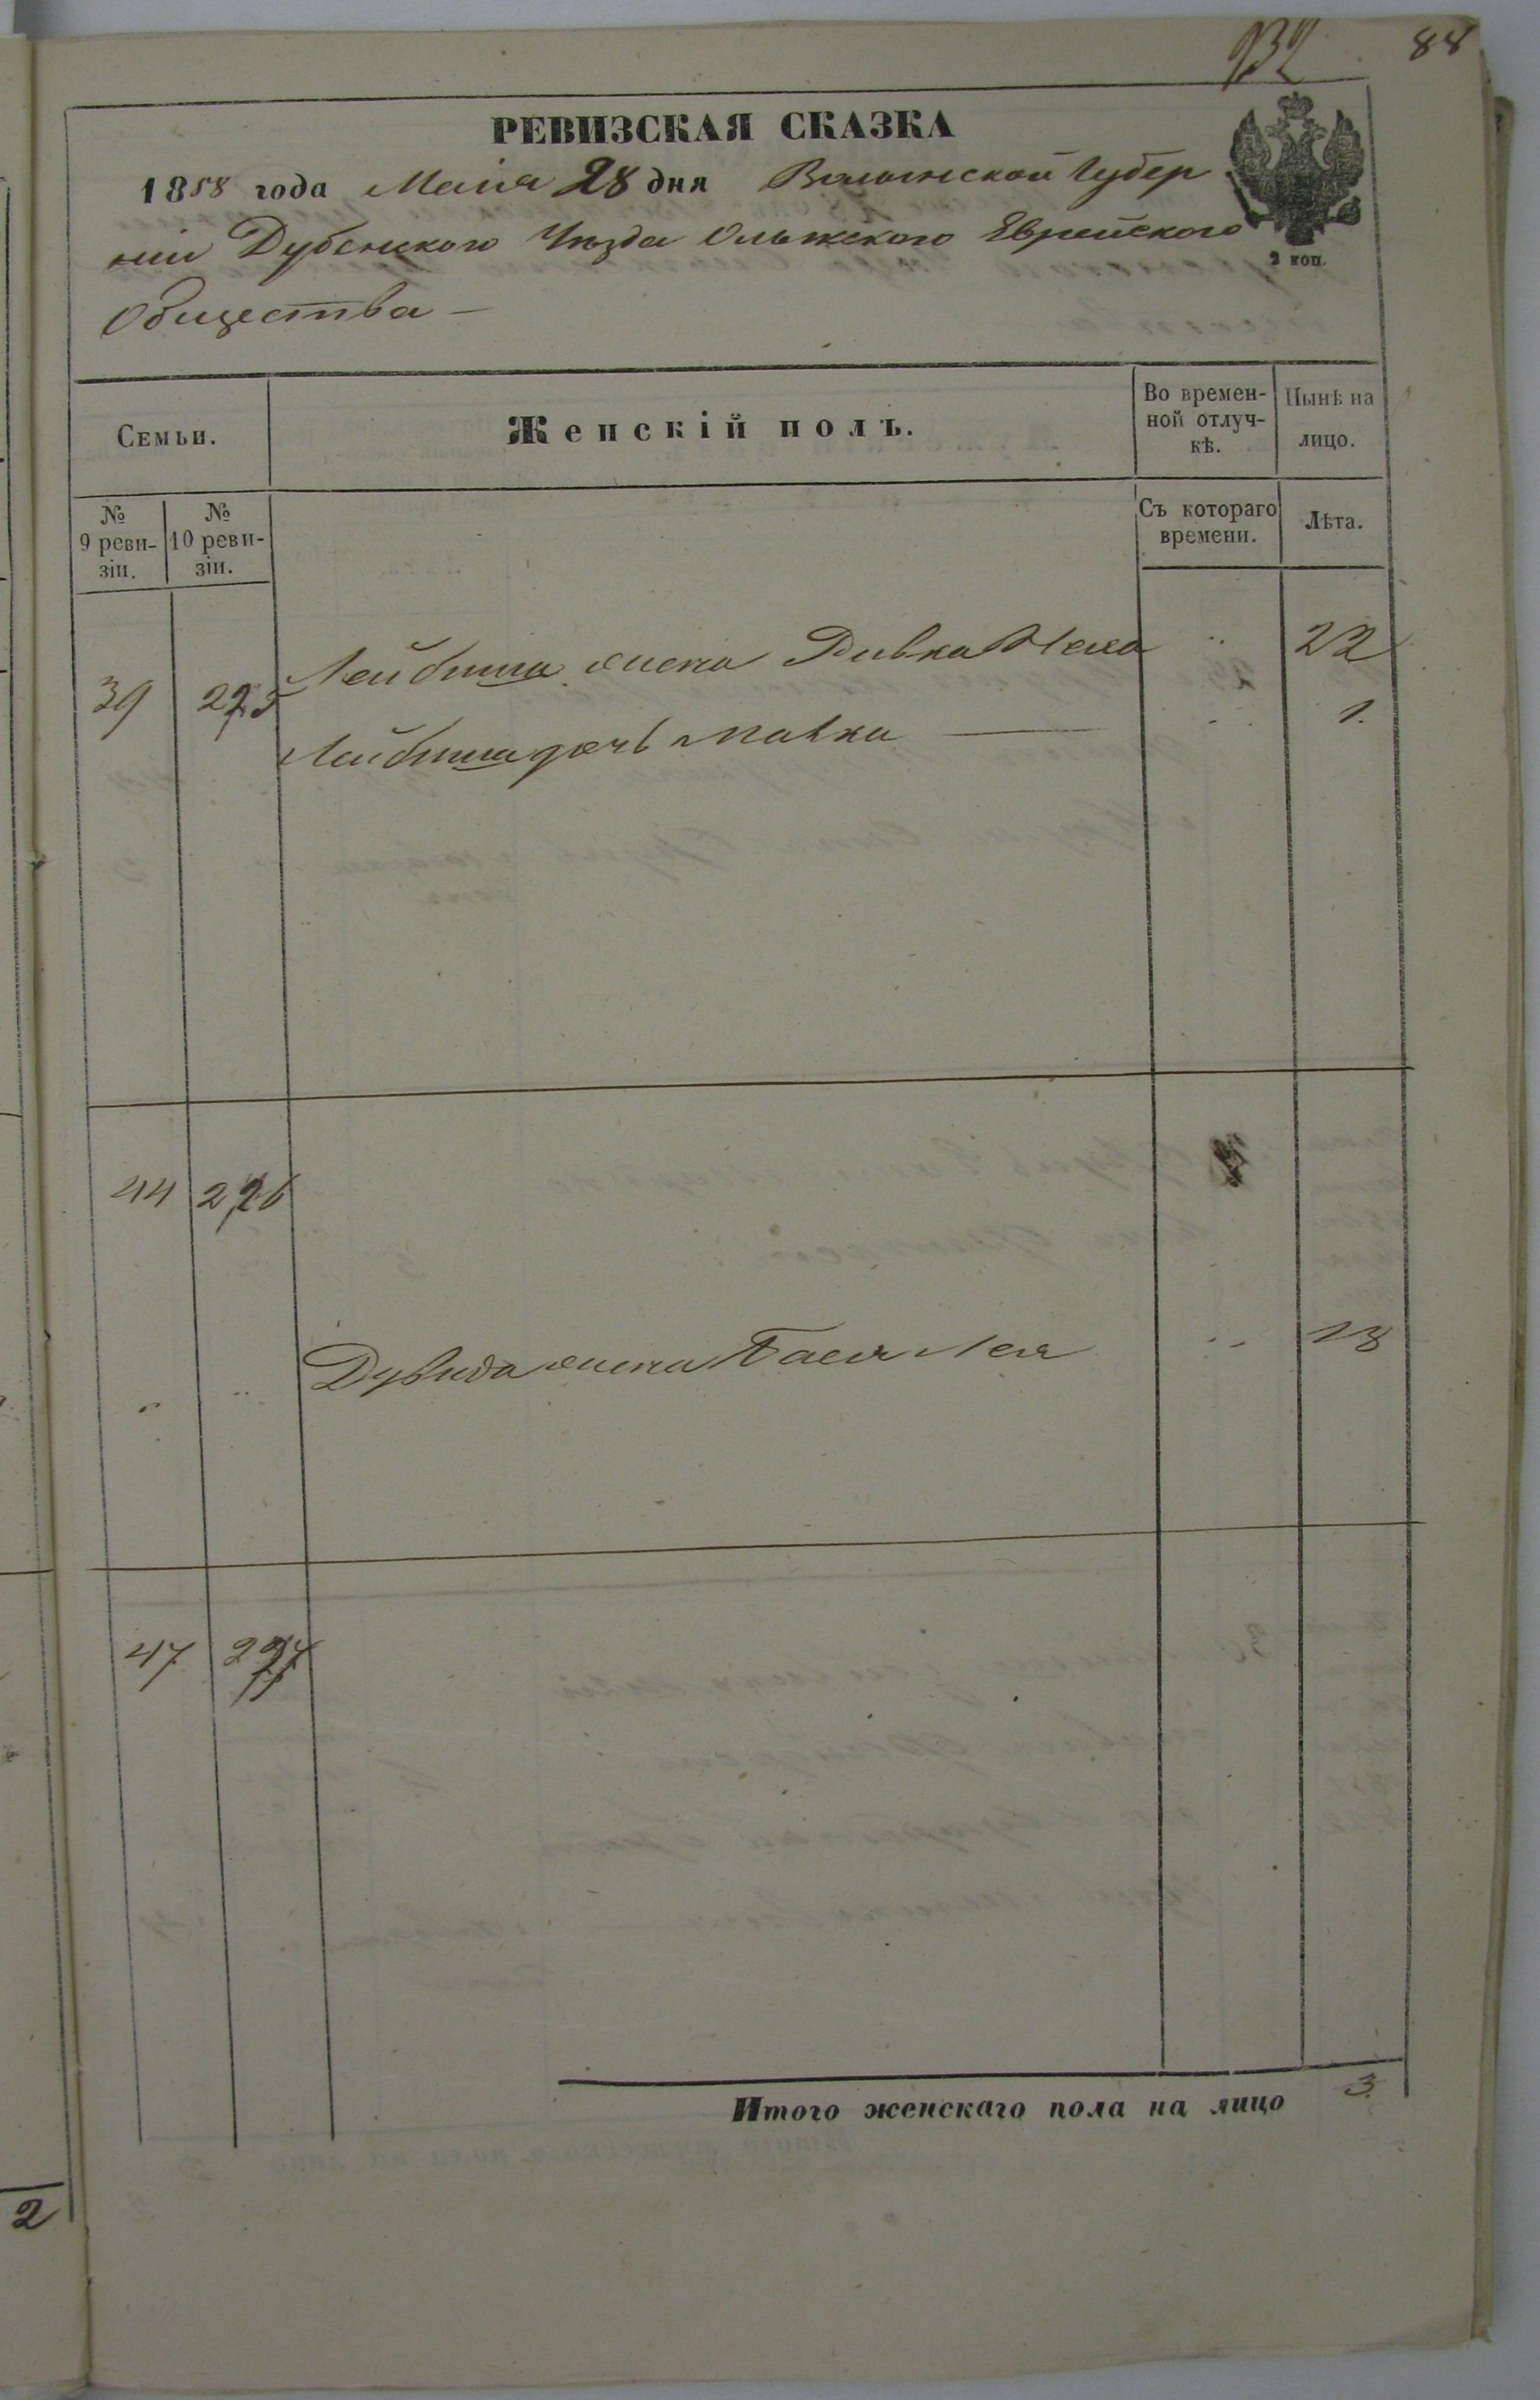 132 88
РЕВИЗСКАЯ СКАЗКА
1858 года Маія 28 дня Волынской Губер
ніи Дубенскаго Уѣзда Олыжского Еврейского
2 коп.
Общества —
Семьи.
Женскій полъ.
Во времен-
ной отлуч-
кѣ.
Нынѣ на
лицо.
№
9 реви-
зіи.
№
10 реви-
зіи.
Съ котораго
времени.
Лѣта.
39 225 Лейбиша жена Ривка 22
Лейбиша дочь Малка 1.
44 226
Дувида жена Бася Лея 18
47 227
Итого женскаго пола на лицо 3.
2